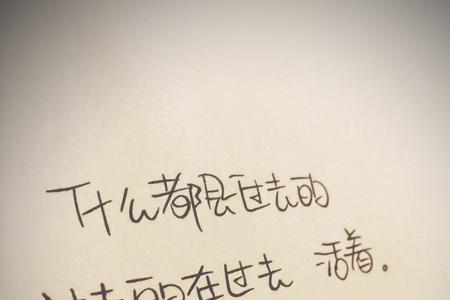 什么都过去的
在过去 活着。